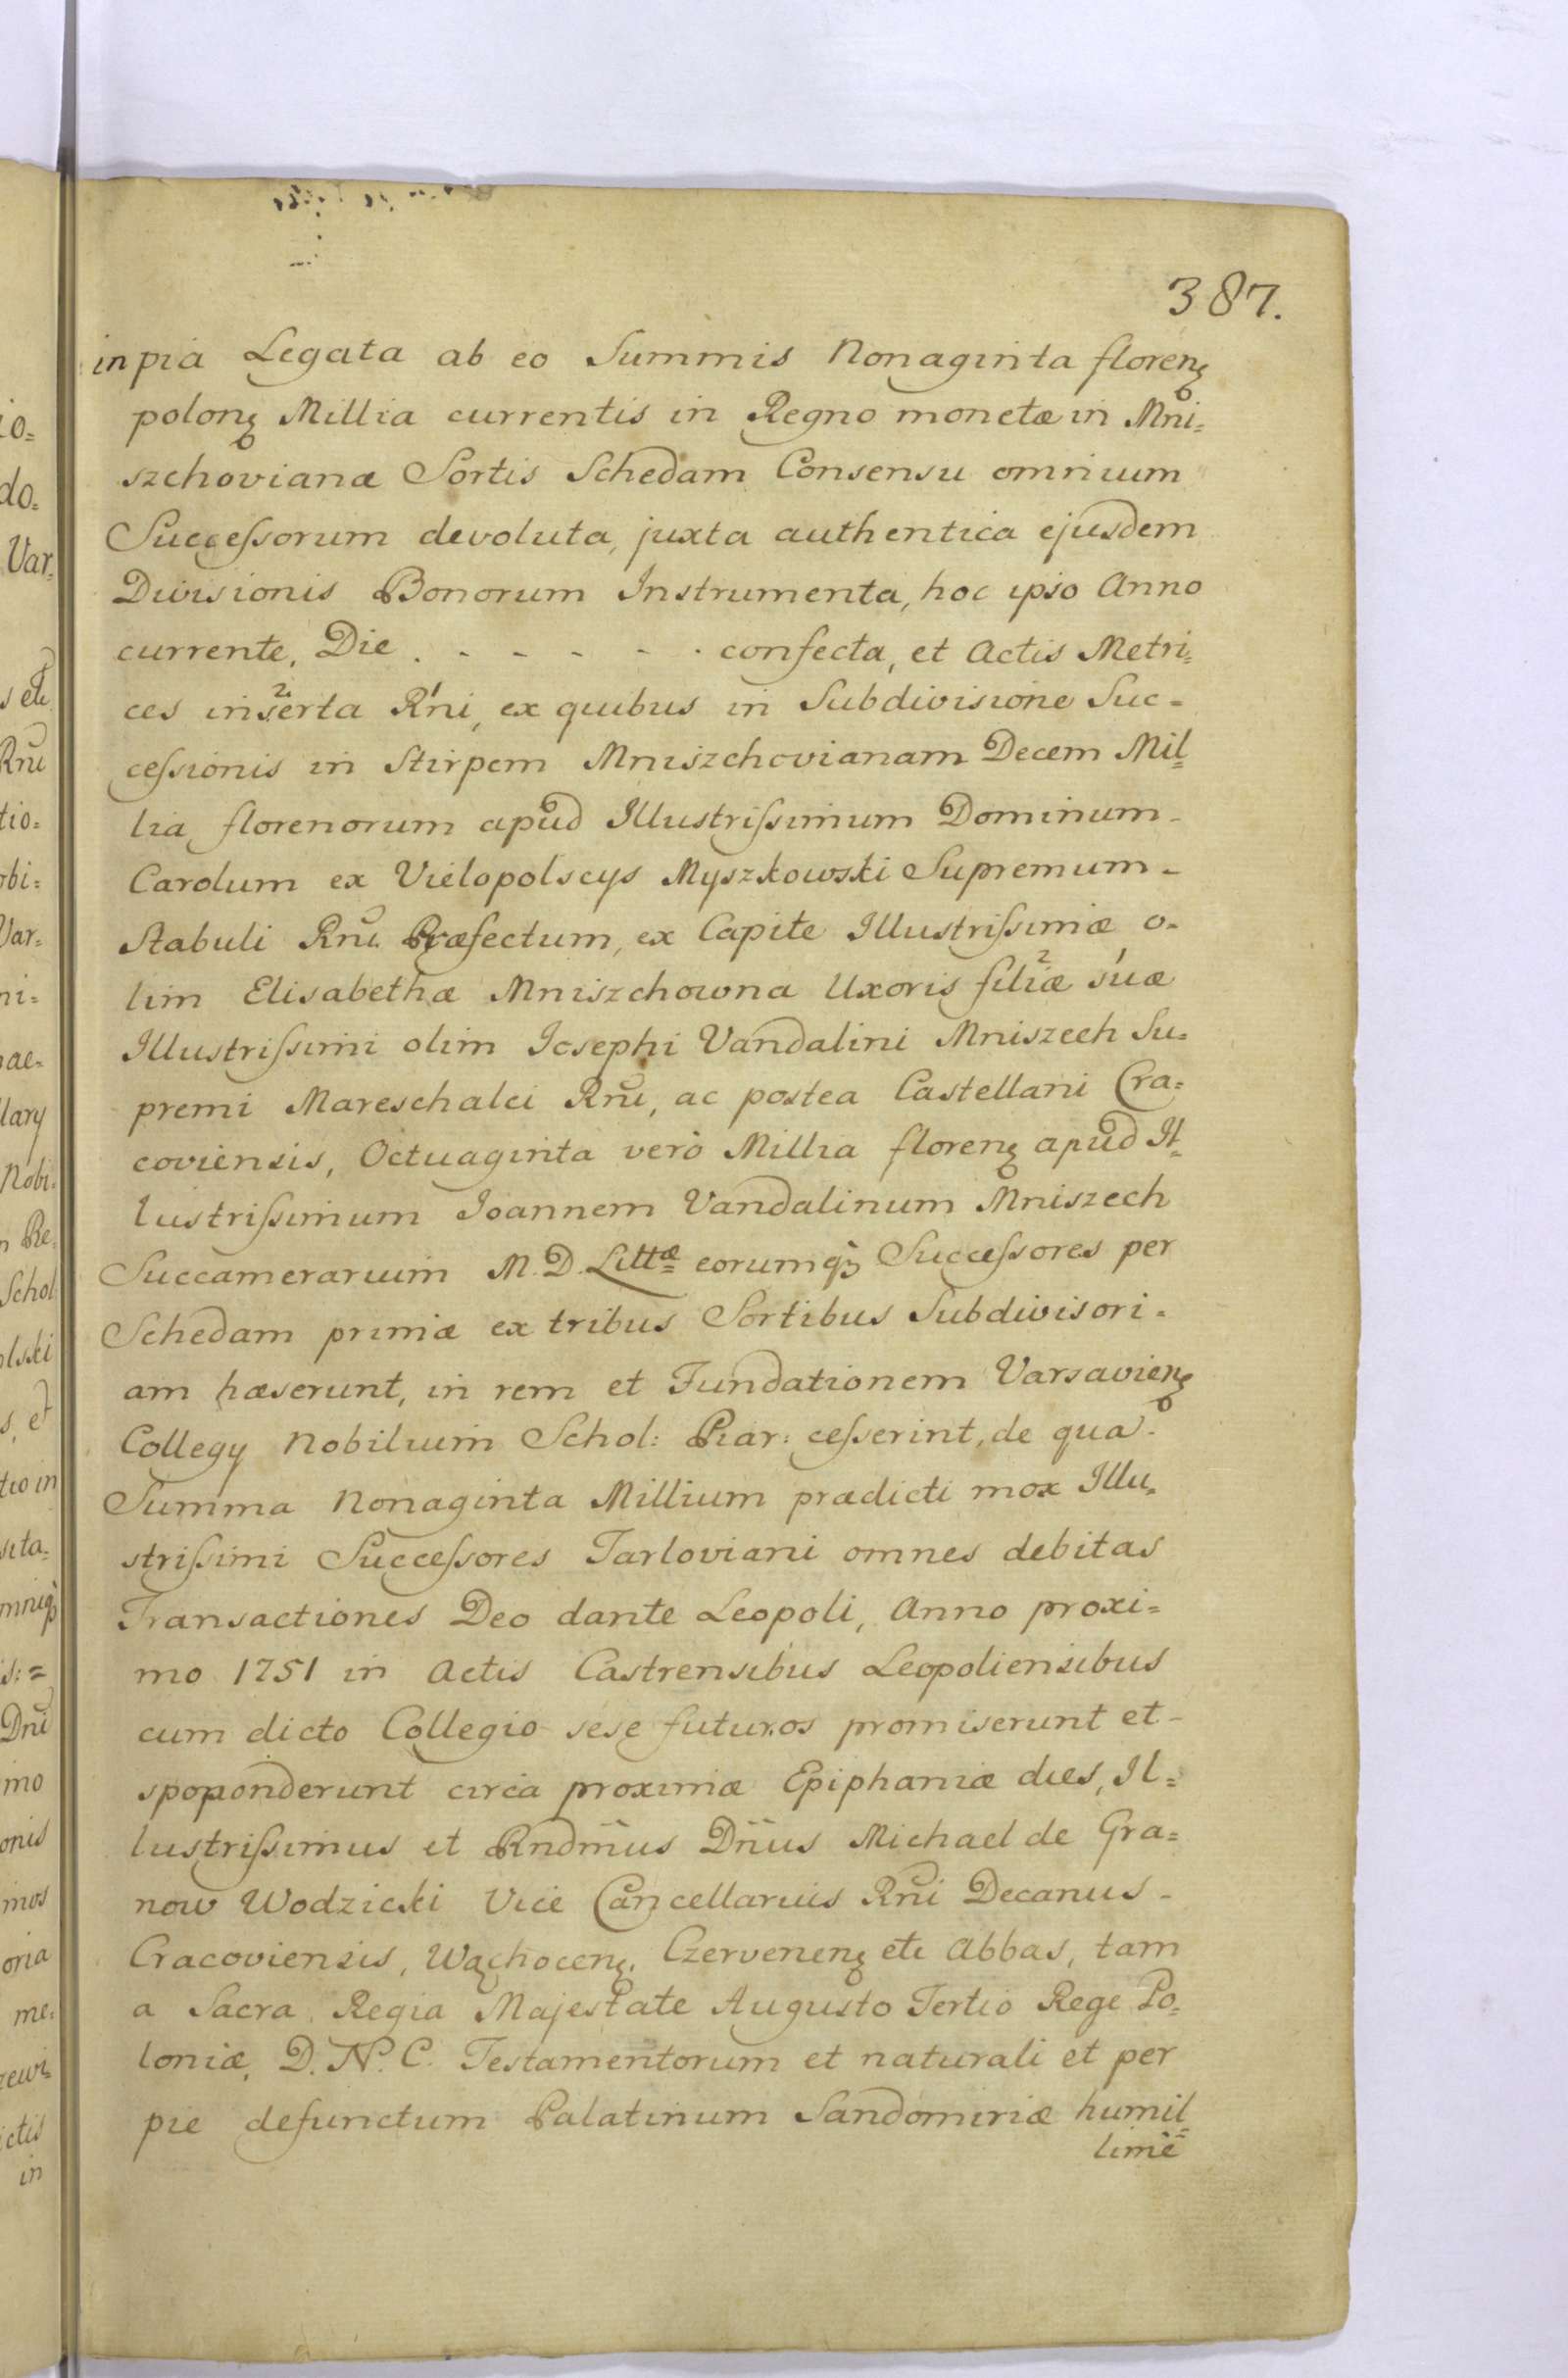 387.
in pia Legata ab eo Summis Nonaginta florenȝ
polonȝ Millia currentis in Regno monetæ in Mni=
szchovianæ Sortis Schedam Consensu omnium
Succeſsorum devoluta, juxta authentica ejusdem
Divisionis Bonorum Instrumenta, hoc ipso Anno
currente, Die . - - - - - . confecta, et Actis Metri=
ces inserta Rni, ex quibus in Subdivisione Suc=
ceſsionis in Stirpem Mniszchovianam Decem Mil=
lia florenorum apud Illustriſsimum Dominum-
Carolum ex Vielopolscys Myszkowski Supremum-
Stabuli Rni Præfectum, ex Capite Illustriſsimæ o=
lim Elisabethæ Mniszchowna Uxoris filiæ suæ
Illustriſsimi olim Josephi Vandalini Mniszech Su=
premi Mareschalci Rni, ac postea Castellani Cra=
coviensis, Octuaginta verò Millia florenȝ apud Il=
lustriſsimum Joannem Vandalinum Mniszech
Succamerarium M. D. Littæ eorumqȝ Succeſsores per
Schedam primæ ex tribus Sortibus Subdivisori=
am hæserunt, in rem et Fundationem Varsavienȝ
Collegy Nobilium Schol: Piar: ceſserint, de qua-
Summa Nonaginta Millium prædicti mox Illu=
striſsimi Succeſsores Tarloviani omnes debitas
Transactiones Deo dante Leopoli, Anno proxi=
mo 1751 in Actis Castrensibus Leopoliensibus
cum dicto Collegio sese futuros promiserunt et-
spoponderunt circa proximæ Epiphaniæ dies, Il=
lustriſsimus et Rndmus Dnus Michael de Gra=
now Wodzicki Vice Cancellarius Rni Decanus-
Cracoviensis, Wąchocenȝ. Czervenenȝ etc Abbas, tam
a Sacra Regia Majestate Augusto Tertio Rege Po=
loniæ, D. N. C. Testamentorum et naturali et per
pie defunctum Palatinum Sandomiriæ humil=
limè